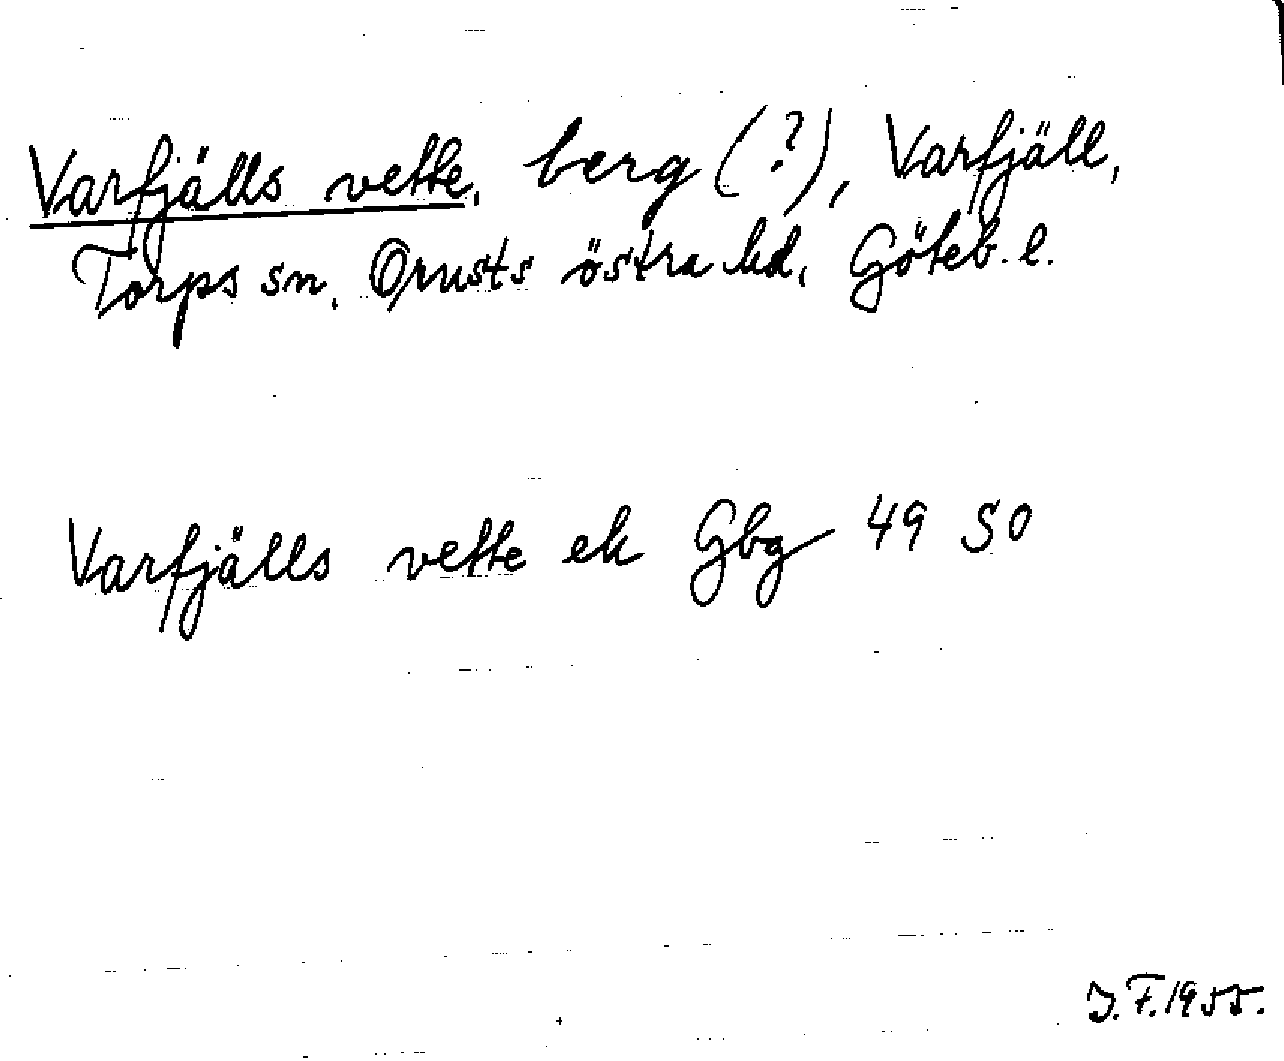 Varfjälls vette, berg (?), Varfjäll,
Torps sn, Orusts östra hd, Göteb. l.
Varfjälls vette ek Gbg 49 SO
J. F. 1955.